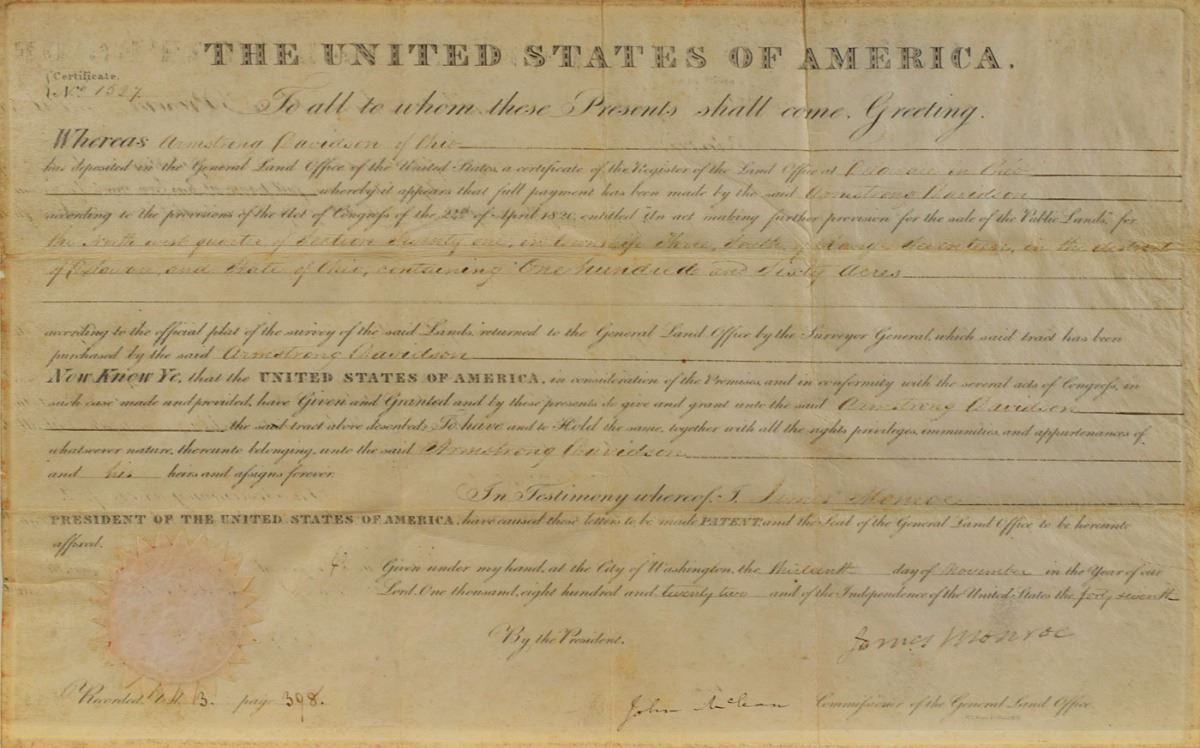 THE UNITED STATES OF AMERICA.
Certificate.
No. 1527
To all to whom these Presents shall come, Greeting.
Whereas Armstrong Davidson of Ohio
has deposited in the General Land Office of the United States, a certificate of the Register of the Land Office at Delaware in Ohio
whereby it appears that full payment has been made by the said Armstrong Davidson
according to the provisions of the Act of Congress of the 24th of April 1820, entitled "An act making further provision for the sale of the Public Lands," for
the North west quarter of Section Twenty one, in Township Three, South, of Range Seventeen, in the district
of Delaware, and State of Ohio, containing One hundred and Sixty Acres
according to the official plat of the survey of the said Lands, returned to the General Land Office by the Surveyor General, which said tract has been
purchased by the said Armstrong Davidson
Now Know Ye, that the UNITED STATES OF AMERICA, in consideration of the Premises, and in conformity with the several acts of Congress, in
such case made and provided, have Given and Granted and by these presents do give and grant unto the said Armstrong Davidson
the said tract above described: To have and to Hold the same, together with all the rights privileges, immunities, and appurtenances of
whatsoever nature, thereunto belonging, unto the said Armstrong Davidson
and his heirs and assigns forever.
In Testimony whereof, I, James Monroe
PRESIDENT OF THE UNITED STATES OF AMERICA, have caused these letters to be made PATENT, and the Seal of the General Land Office to be hereunto
affixed.
Given under my hand, at the City of Washington, the thirteenth day of November in the Year of our
Lord, One thousand, eight hundred and twenty two and of the Independence of the United States the forty seventh
By the President.
James Monroe
Recorded, Vol. 3. page 398.
John McLean Commissioner of the General Land Office.